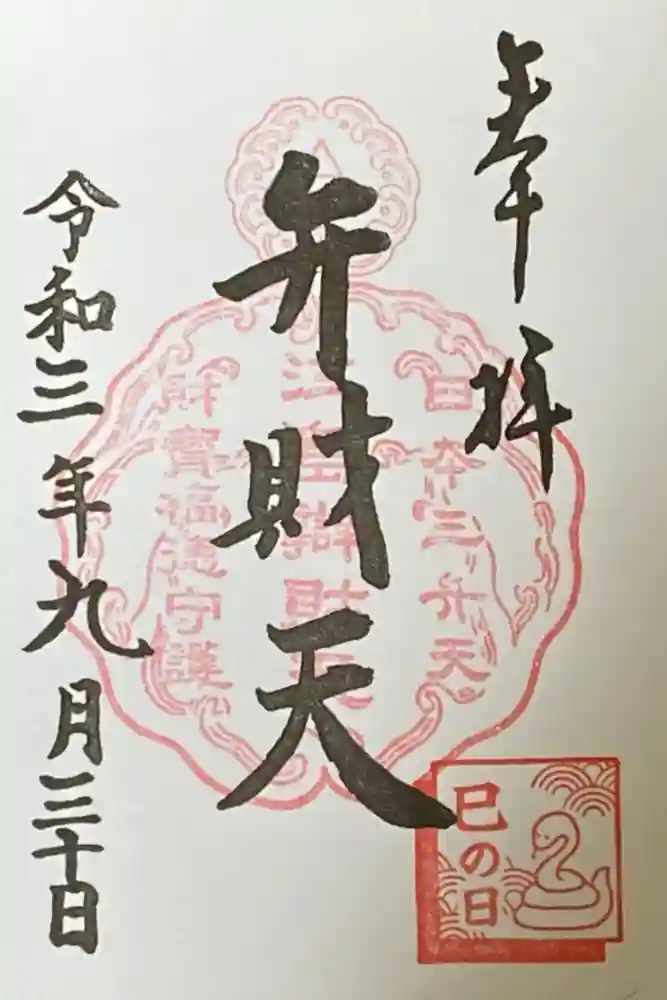 奉拝
日本三弁天
江島辯財天
財寳福徳守護
弁財天
巳の日
令和三年九月三十日